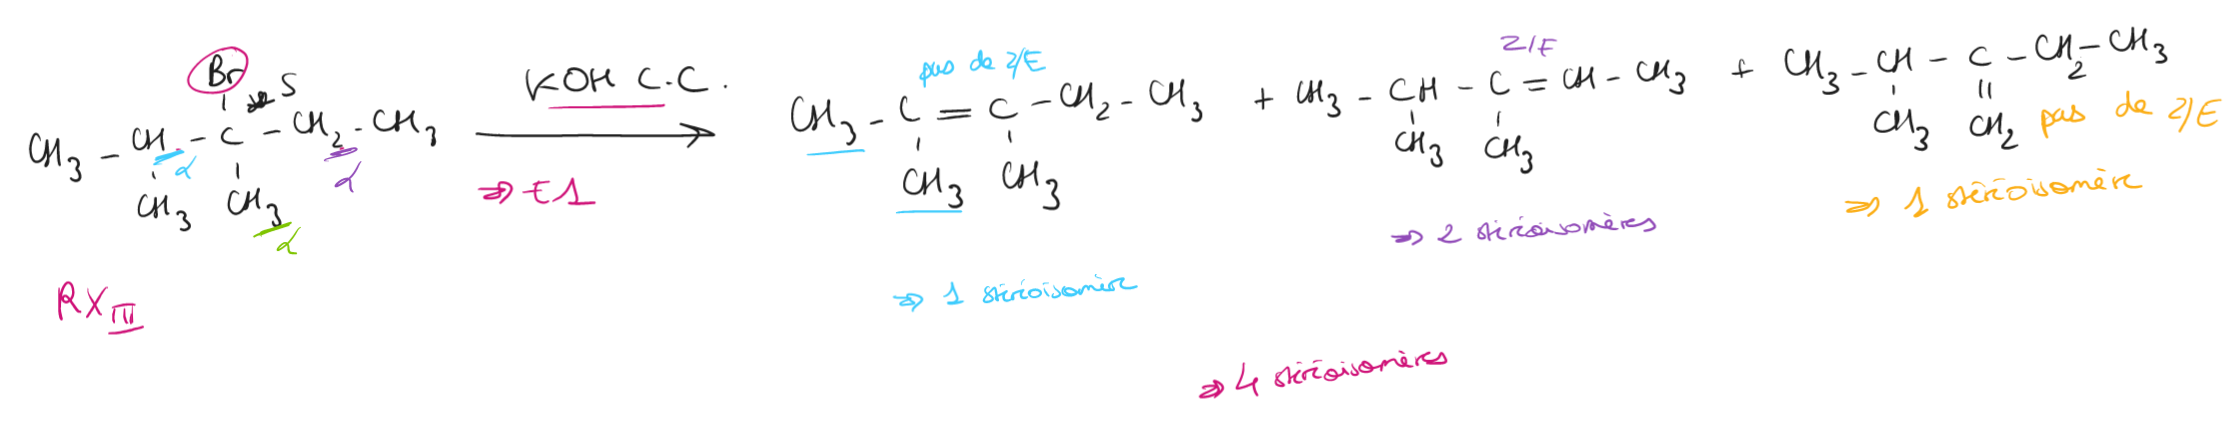 Br S
CH3 - CH - C - CH2 - CH3
α α
CH3 CH3
α
RX III
KOH C.C.
⇒ E1
pas de Z/E
CH3 - C = C - CH2 - CH3
CH3 CH3
⇒ 1 stéréoisomère
+
Z/E
CH3 - CH - C = CH - CH3
CH3 CH3
⇒ 2 stéréoisomères
+
CH3 - CH - C - CH2 - CH3
CH3 CH2 pas de Z/E
⇒ 1 stéréoisomère
⇒ 4 stéréoisomères